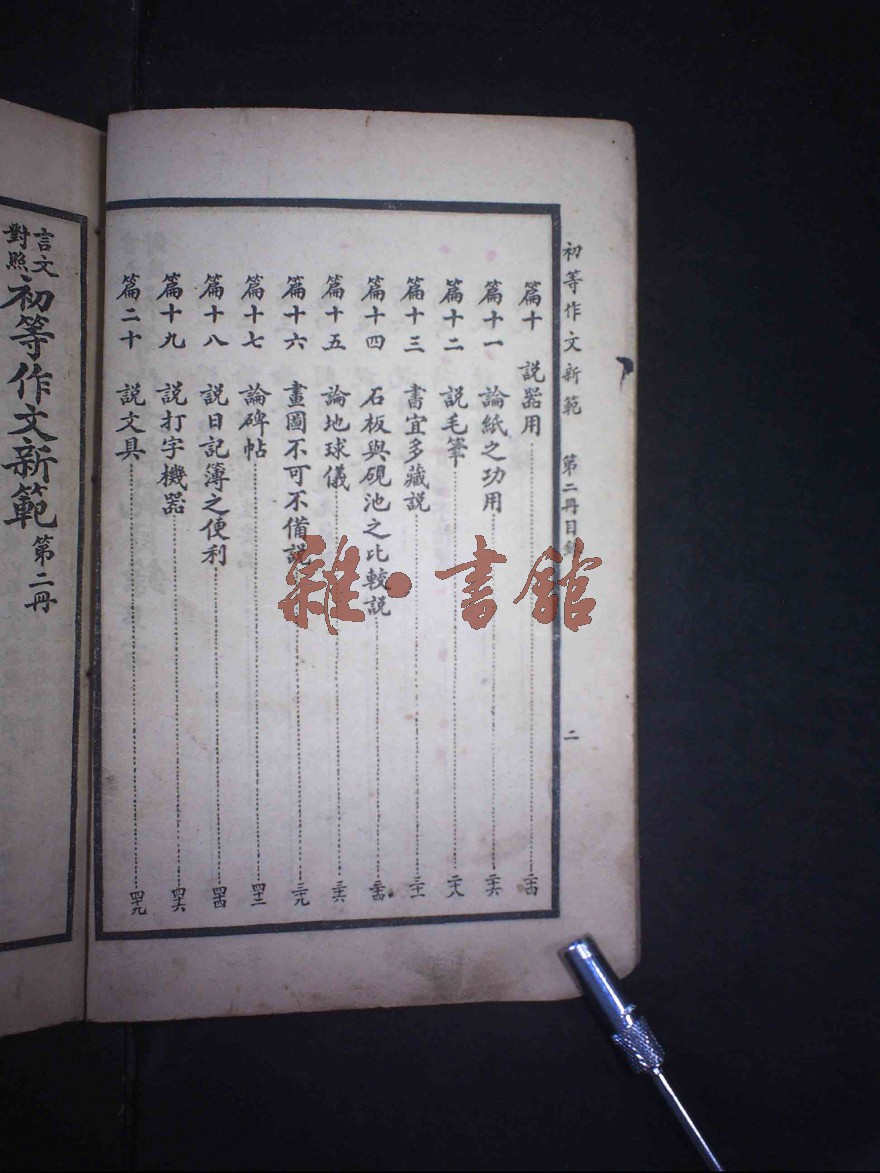 初等作文新範 第二冊目錄 二
篇十 説器用 二十四
篇十一 論紙之功用 二十六
篇十二 説毛筆 二十八
篇十三 書宜多藏説 三十一
篇十四 石板與硯池之比較説 三十四
篇十五 論地球儀 三十六
篇十六 畫圖不可不備説 三十九
篇十七 論碑帖 四十二
篇十八 説日記簿之便利 四十四
篇十九 説打字機器 四十六
篇二十 説文具 四十九
言文對照 初等作文新範 第二冊
雜·書館